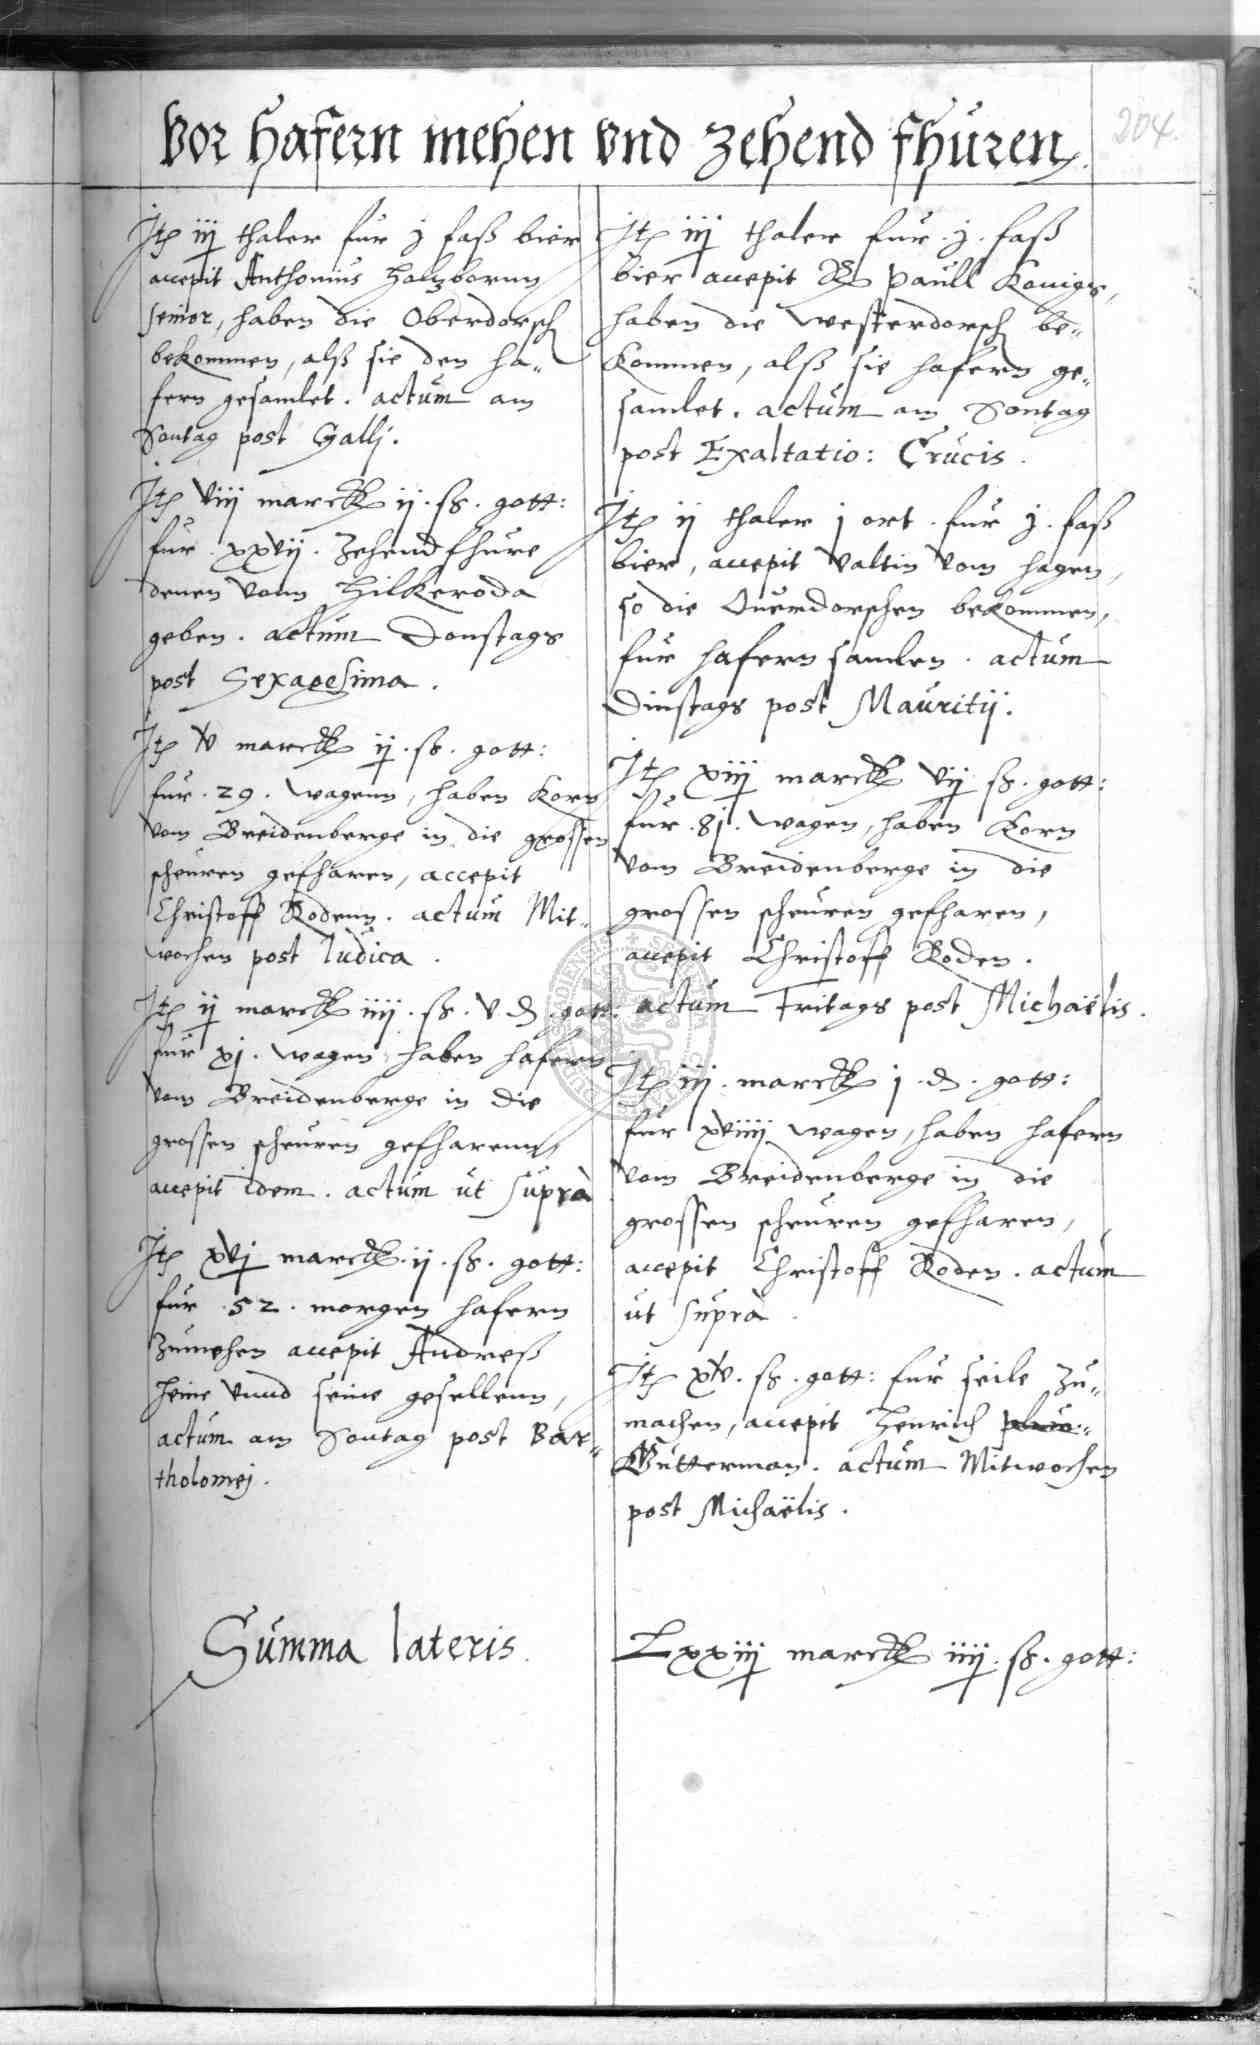 Vor Hafern mehen vnd Zehend fhüren.
204.
Itz iij thaler fur j faß bier
accepit Anthonius Holtzbornn
senior, haben die Oberdorsch
bekommen, alß sie den ha„
fern gesamlet. actum am
Sontag post Galli.
Itz viij marck ij. ß. gott:
fur. xxvij. Zehendfhure
denen vonn Hilkeroda
geben. actum Donstags
post Sexagesima.
Itz v marck ij. ß. gott:
fur. 29. wagenn, haben Korn
vom Breidenberge in die grossen
scheuren gefharen, accepit
Christoff Rodenn. actum Mit„
wochen post Iudica.
Itz ij marck iiij. ß. v d. gott:
fur xj. wagen haben hafern
vom Breidenberge in die
grossen scheuren gefharenn,
accepit idem. actum ut suprà
Itz xvj marck. ij. ß. gott:
fur. 52. morgen hafern
zumehen accepit Andreß
Heine vnnd seine gesellenn,
actum am Sontag post Bar„
tholomej.
Itz iij thaler fur. j. faß
bier accepit Paull Konigs,
haben die westerdorsch be„
kommen, alß sie hafern ge„
samlet. actum am Sontag
post Exaltatio: Crucis.
Itz ij thaler j ort. fur j. faß
bier, accepit Valtin vom hagen,
so die Ouerdorschen bekommen,
fur hafern samlen. actum
Dinstags post Mauritij.
Itz xiij marck vij ß. gott:
fur. 81. wagen, haben Korn
vom Breidenberge in die
grossen scheuren gefharen,
accepit Christoff Roden.
actum Fritags post Michaëlis.
Itz iij. marck j. d. gott:
fur xviiij wagen, haben hafern
vom Breidenberge in die
grossen scheuren gefharen,
accepit Christoff Roden. actum
ut suprà.
Itz xv. ß. gott: fur seile zu„
machen, accepit Henrich
Gutterman. actum Mitwochen
post Michaëlis.
Summa lateris.
Lxxiij marck iiij. ß. gott: